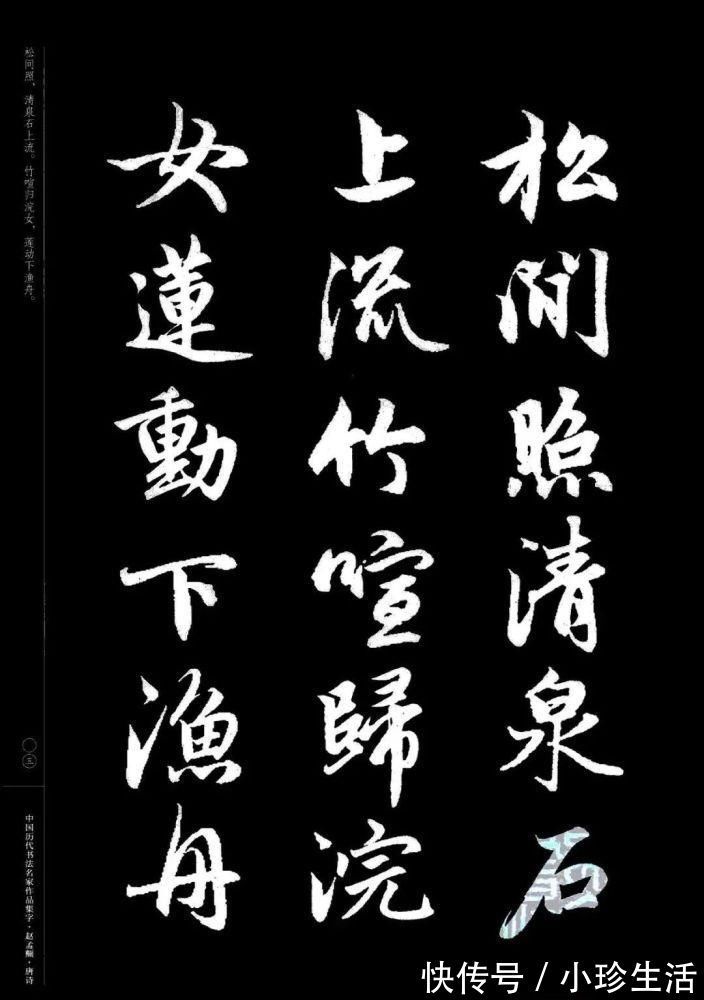 松間照清泉石
上流竹喧歸浣
女蓮動下漁舟
松间照，清泉石上流。竹喧归浣女，莲动下渔舟。
〇三
中国历代书法名家作品集字·赵孟頫·唐诗
快传号 / 小珍生活